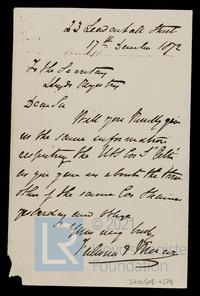 23 Leadenhall Street
17th December 1872
To the Secretary
Lloyds Registry
Dear Sir
Will you kindly give
us the same information
respecting the
as you gave us about the two
other of the same Cos Steamers
yesterday and oblige
Yours very truly
© 2021
Foundation